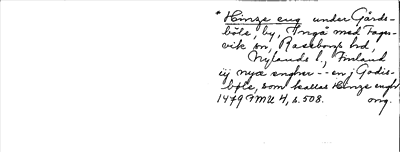 * Hinze eng under Gårds-
böle, by, Ingå med Fager-
vik sn, Raseborgs hd,
Nylands l., Finland
iij nyæ engher -- en j Godis-
bøle, som kallas Hinze enghr
1479 FMU 4, s. 508. ong.